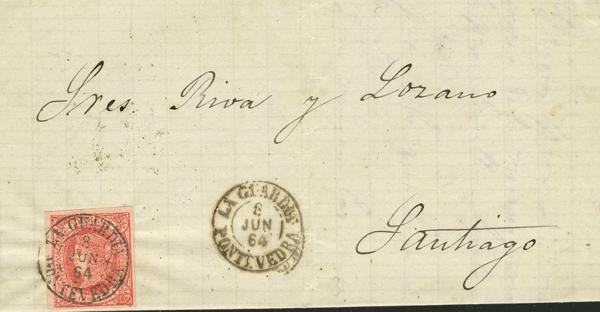 Sres Riva y Lozano
Santiago
LA GUARDIA
8
JUN
64
PONTEVEDRA
LA GUARDIA
8
JUN
64
PONTEVEDRA